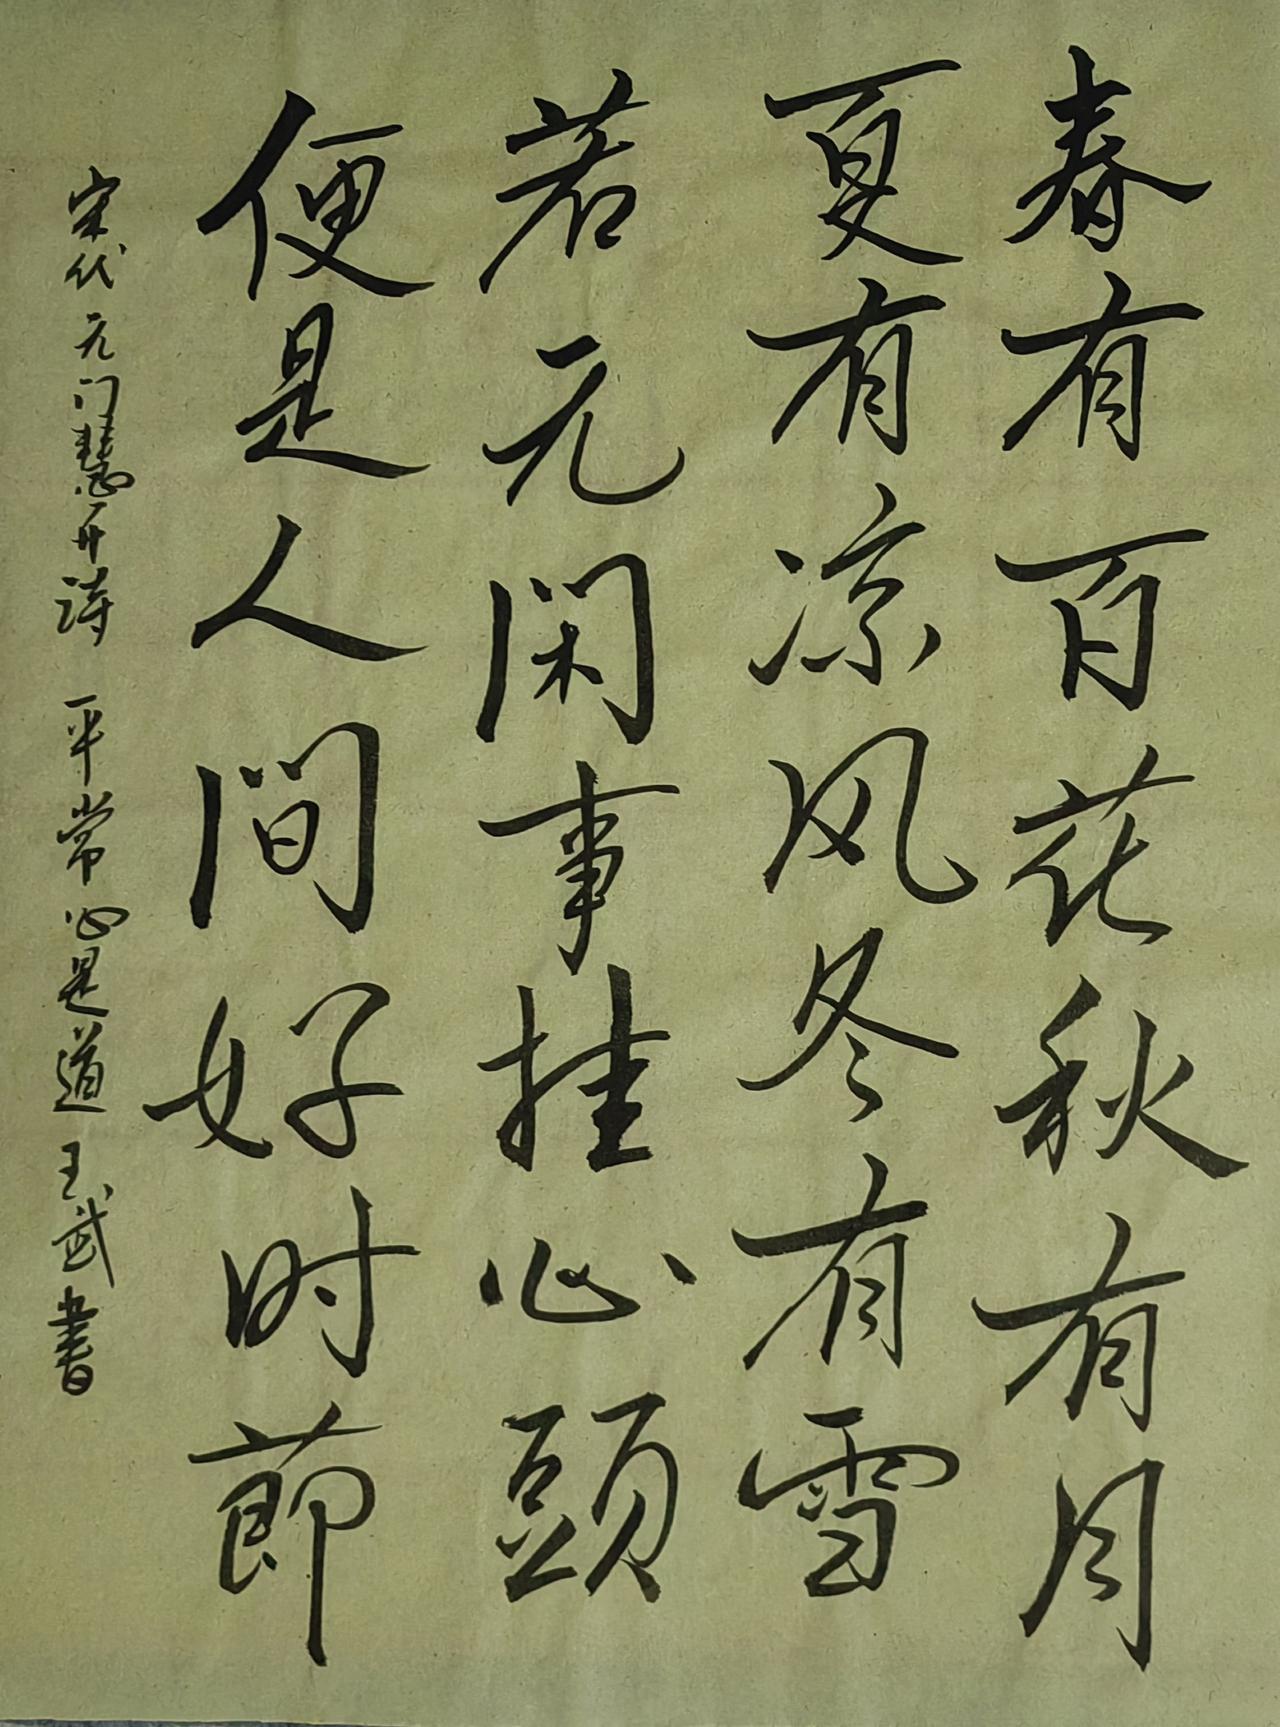 春有百花秋有月
夏有凉风冬有雪
若元闲事挂心頭
便是人间好时節
宋代元门慧开诗 平常心是道 王武書